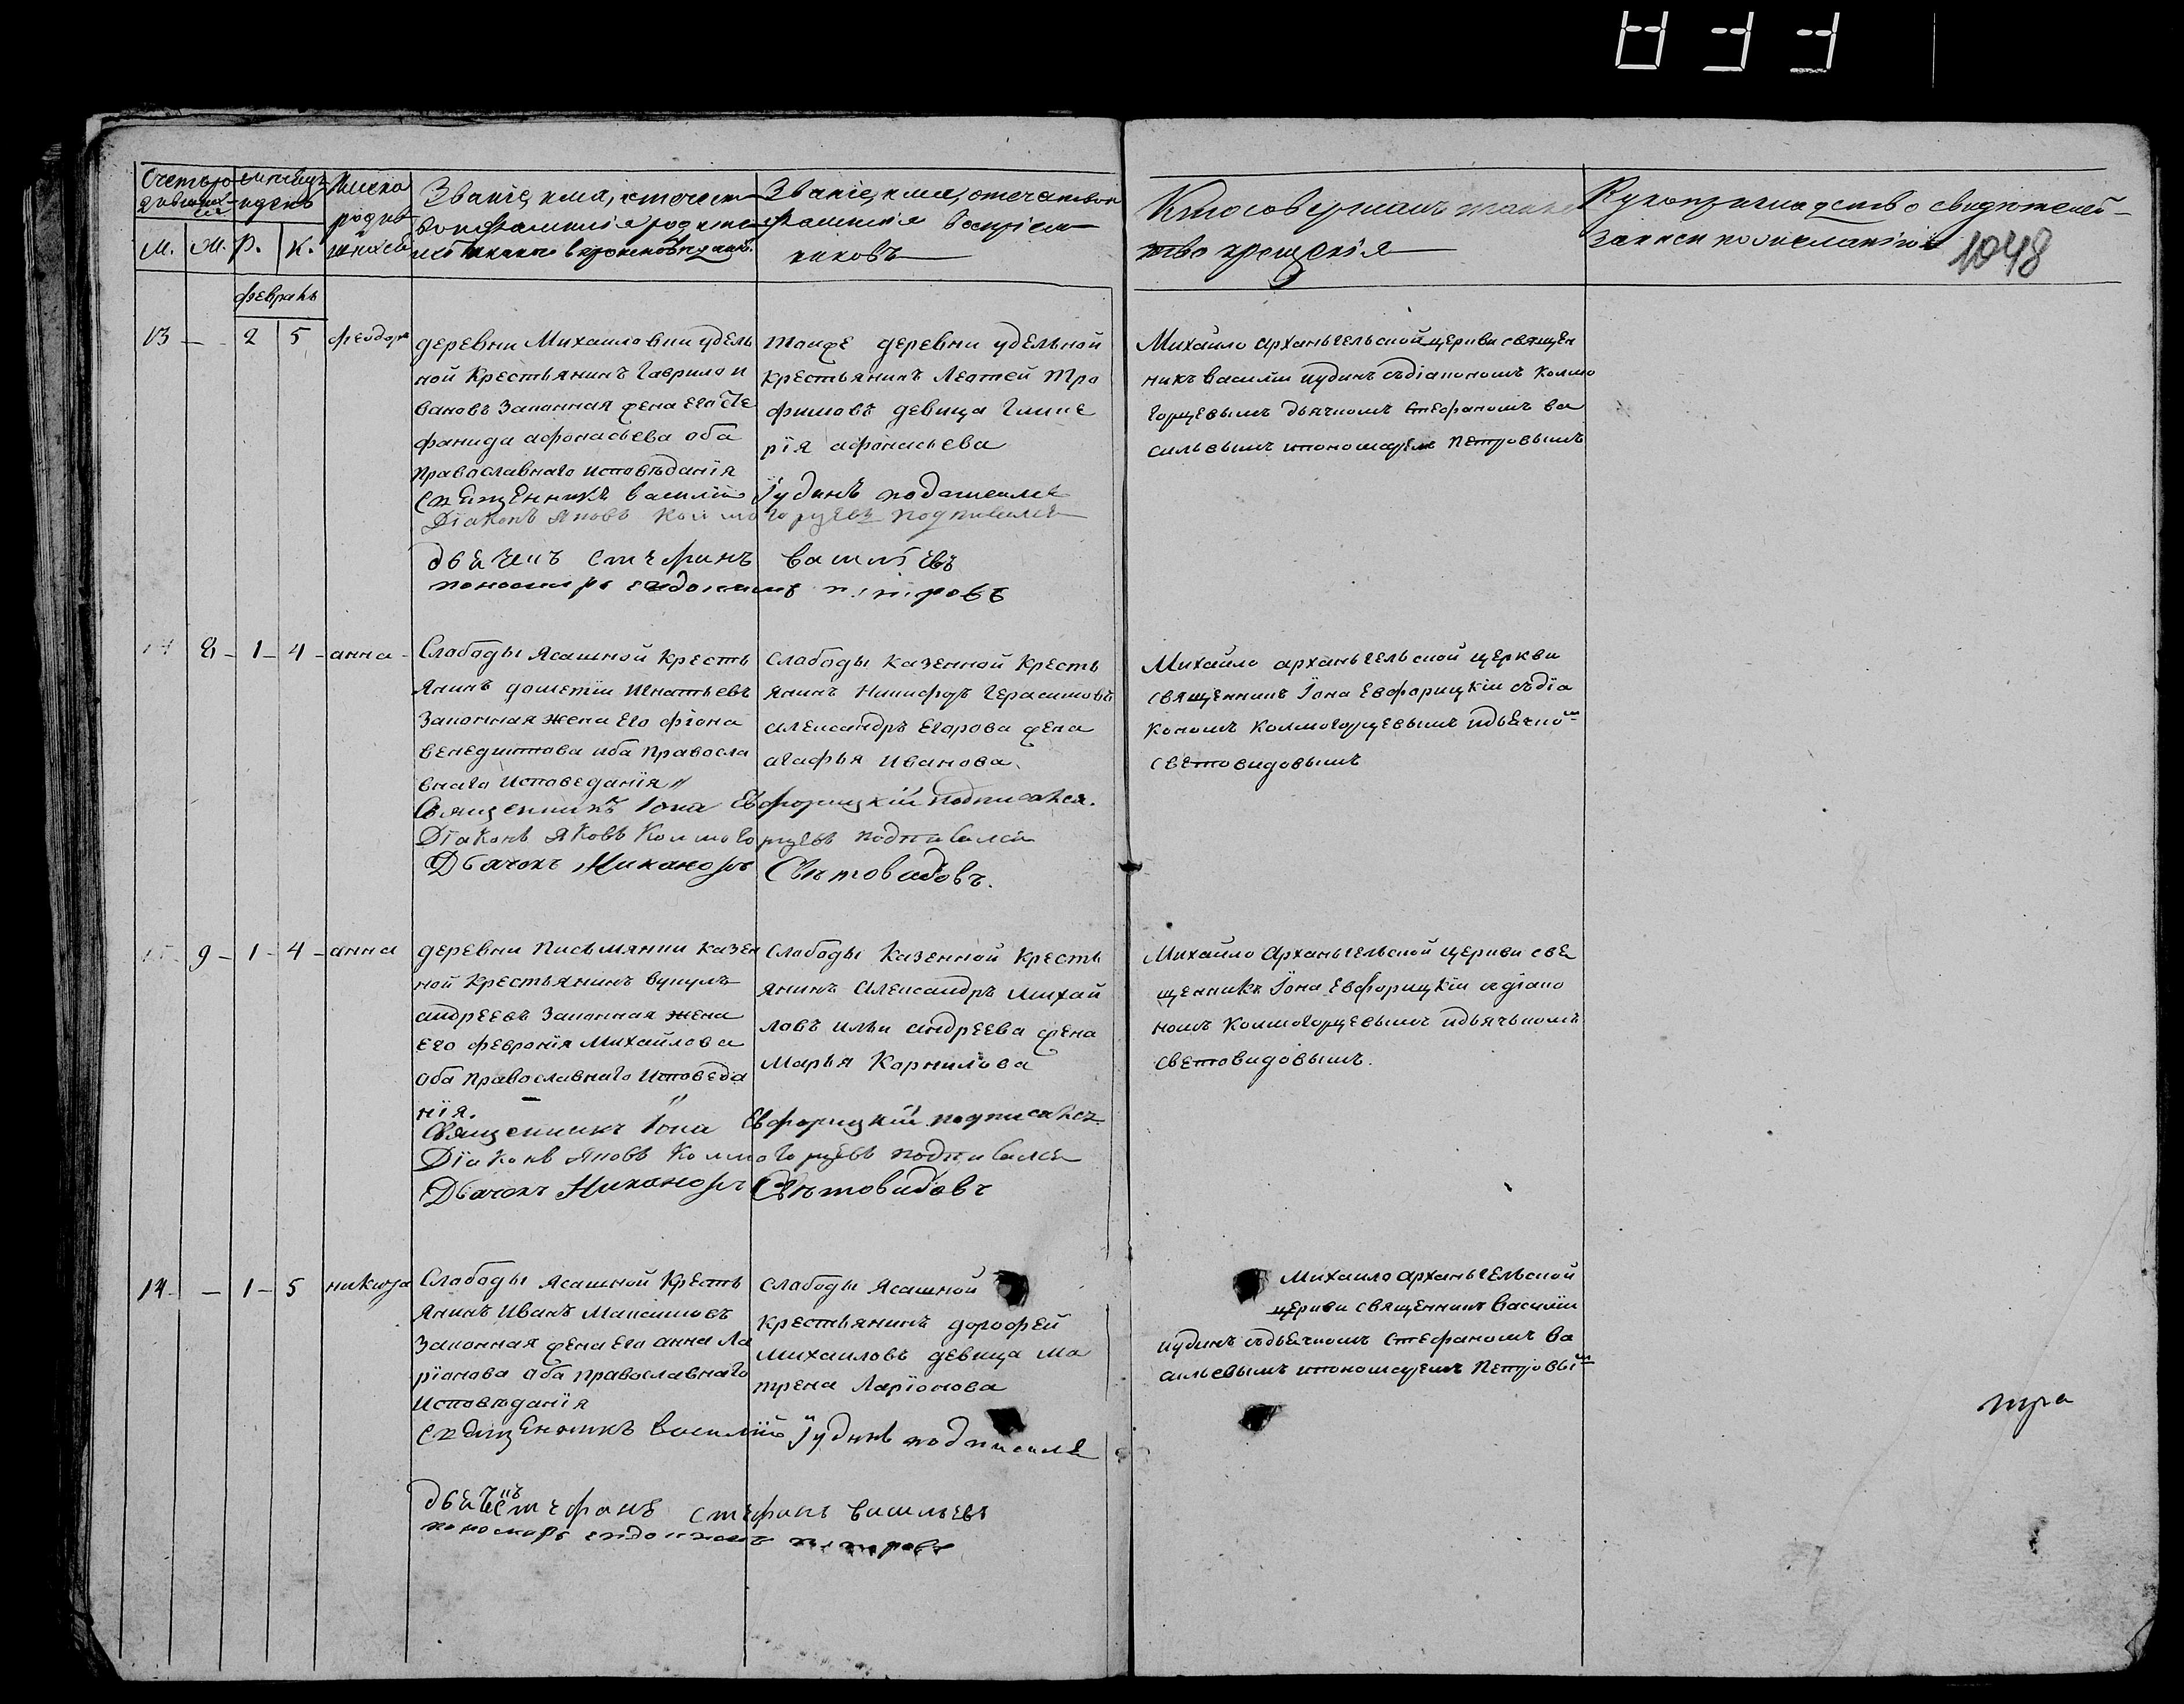 Счетъ родившихся
мѣсяцъ и день
Имена родившихся
Званіе, имя, и отчество и фамилія родителей и какого вѣроисповѣданія
Званіе, имя, отечество и фамилія воспріемниковъ
Кто совершалъ таинство крещенія
Рукоприкладство свидѣтелей записи по желанію
1048
М. Ж. Р. К.
февраль
13 — 2 5 феодоръ
деревни Михаиловки удель
ной Крестьянинъ Гаврило и
вановъ Законная жена его сте
фанида афонасьева оба
православнаго исповѣданія
тоиже деревни удельной
крестьянинъ Леотей Тро
фимовъ девица Глике
рїя афонасьева
Михайло архангельской церкви священ
никъ василїи иудинъ съдіакономъ колмо
горцевымъ дьячкомъ стефаномъ ва
сильевымъ ипономаремъ Петровымъ
Священникъ василїй Iудинъ подписался
Дїаконъ Яковъ Колмогорцевъ подписался
дьячекъ стефанъ василїевъ
пономарь евдокимъ петровъ
14 8 – 1 – 4 – анна
Слабоды Ясашной кресть
янинъ дометїи Игнатьевъ
Законная жена его фїона
венедиктова оба правосла
внаго исповеданїя
Слабоды казенной кресть
янинъ Никифоръ Герасимовъ
александръ Егорова жена
агафья Иванова
Михайло архангельской церкви
священникъ Iона Евфорицкїи съдїа
кономъ колмогорцевымъ идьячком
световидовымъ
Священникъ Iона Евфорицкїй подписался.
Дїаконъ Яковъ Колмогорцевъ подписался
Дьячокъ Никаноръ Свѣтовидовъ.
15 9 – 1 – 4 – анна
деревни Письмянки казен
ной крестьянинъ вукулъ
андреевъ законная жена
его февронїя Михайлова
оба православнаго исповеда
нїя.
Слабоды казенной кресть
янинъ александръ михай
ловъ ильи андреева жена
марья Корнилова
Михайло архангельской церкви свя
щенникъ Iона Евфорицкїи сдїако
номъ Колмогорцевымъ идьячькомъ
световидовымъ.
Священникъ Iона Евфорицкїй подписался
Дїаконъ Яковъ Колмогорцевъ подписался
Дьячокъ Никаноръ Свѣтовидовъ
14 – 1 – 5 никита
Слабоды ясашной кресть
янинъ Иванъ Максимовъ
Законная жена его анна ла
рїонова оба православнаго
исповѣданїя
Слабоды ясашной
крестьянинъ дорофей
михаиловъ девица ма
трена Ларїонова
Михаило архангельской
церкви священникъ василїи
иудинъ съдьячкомъ стефаномъ ва
сильевымъ ипономаремъ Петровым
Священникъ василїй Iудинъ подписался
дьячекъ стефанъ стефанъ васильевъ
пономарь евдокимъ петровъ